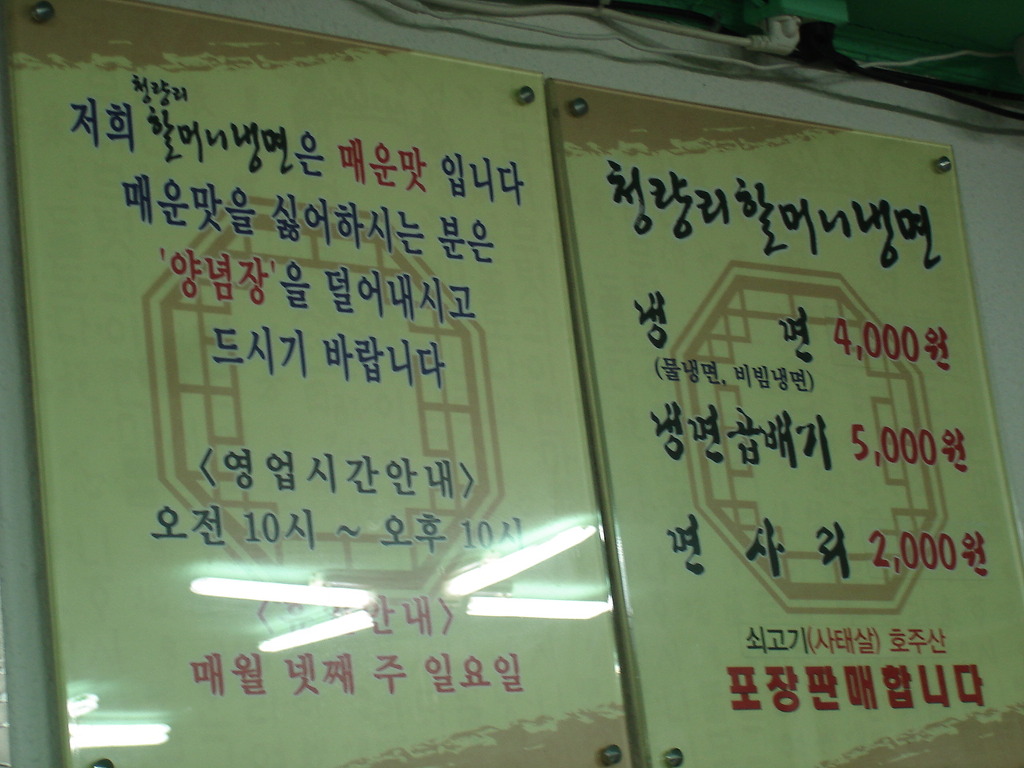 청량리
저희 할머니냉면은 매운맛 입니다
매운맛을 싫어하시는 분은
'양념장'을 덜어내시고
드시기 바랍니다
<영업시간안내>
오전 10시 ~ 오후 10시
안내>
매월 넷째 주 일요일
청량리할머니냉면
냉면 4,000원
(물냉면, 비빔냉면)
냉면곱배기 5,000원
면사리 2,000원
쇠고기(사태살) 호주산
포장판매합니다